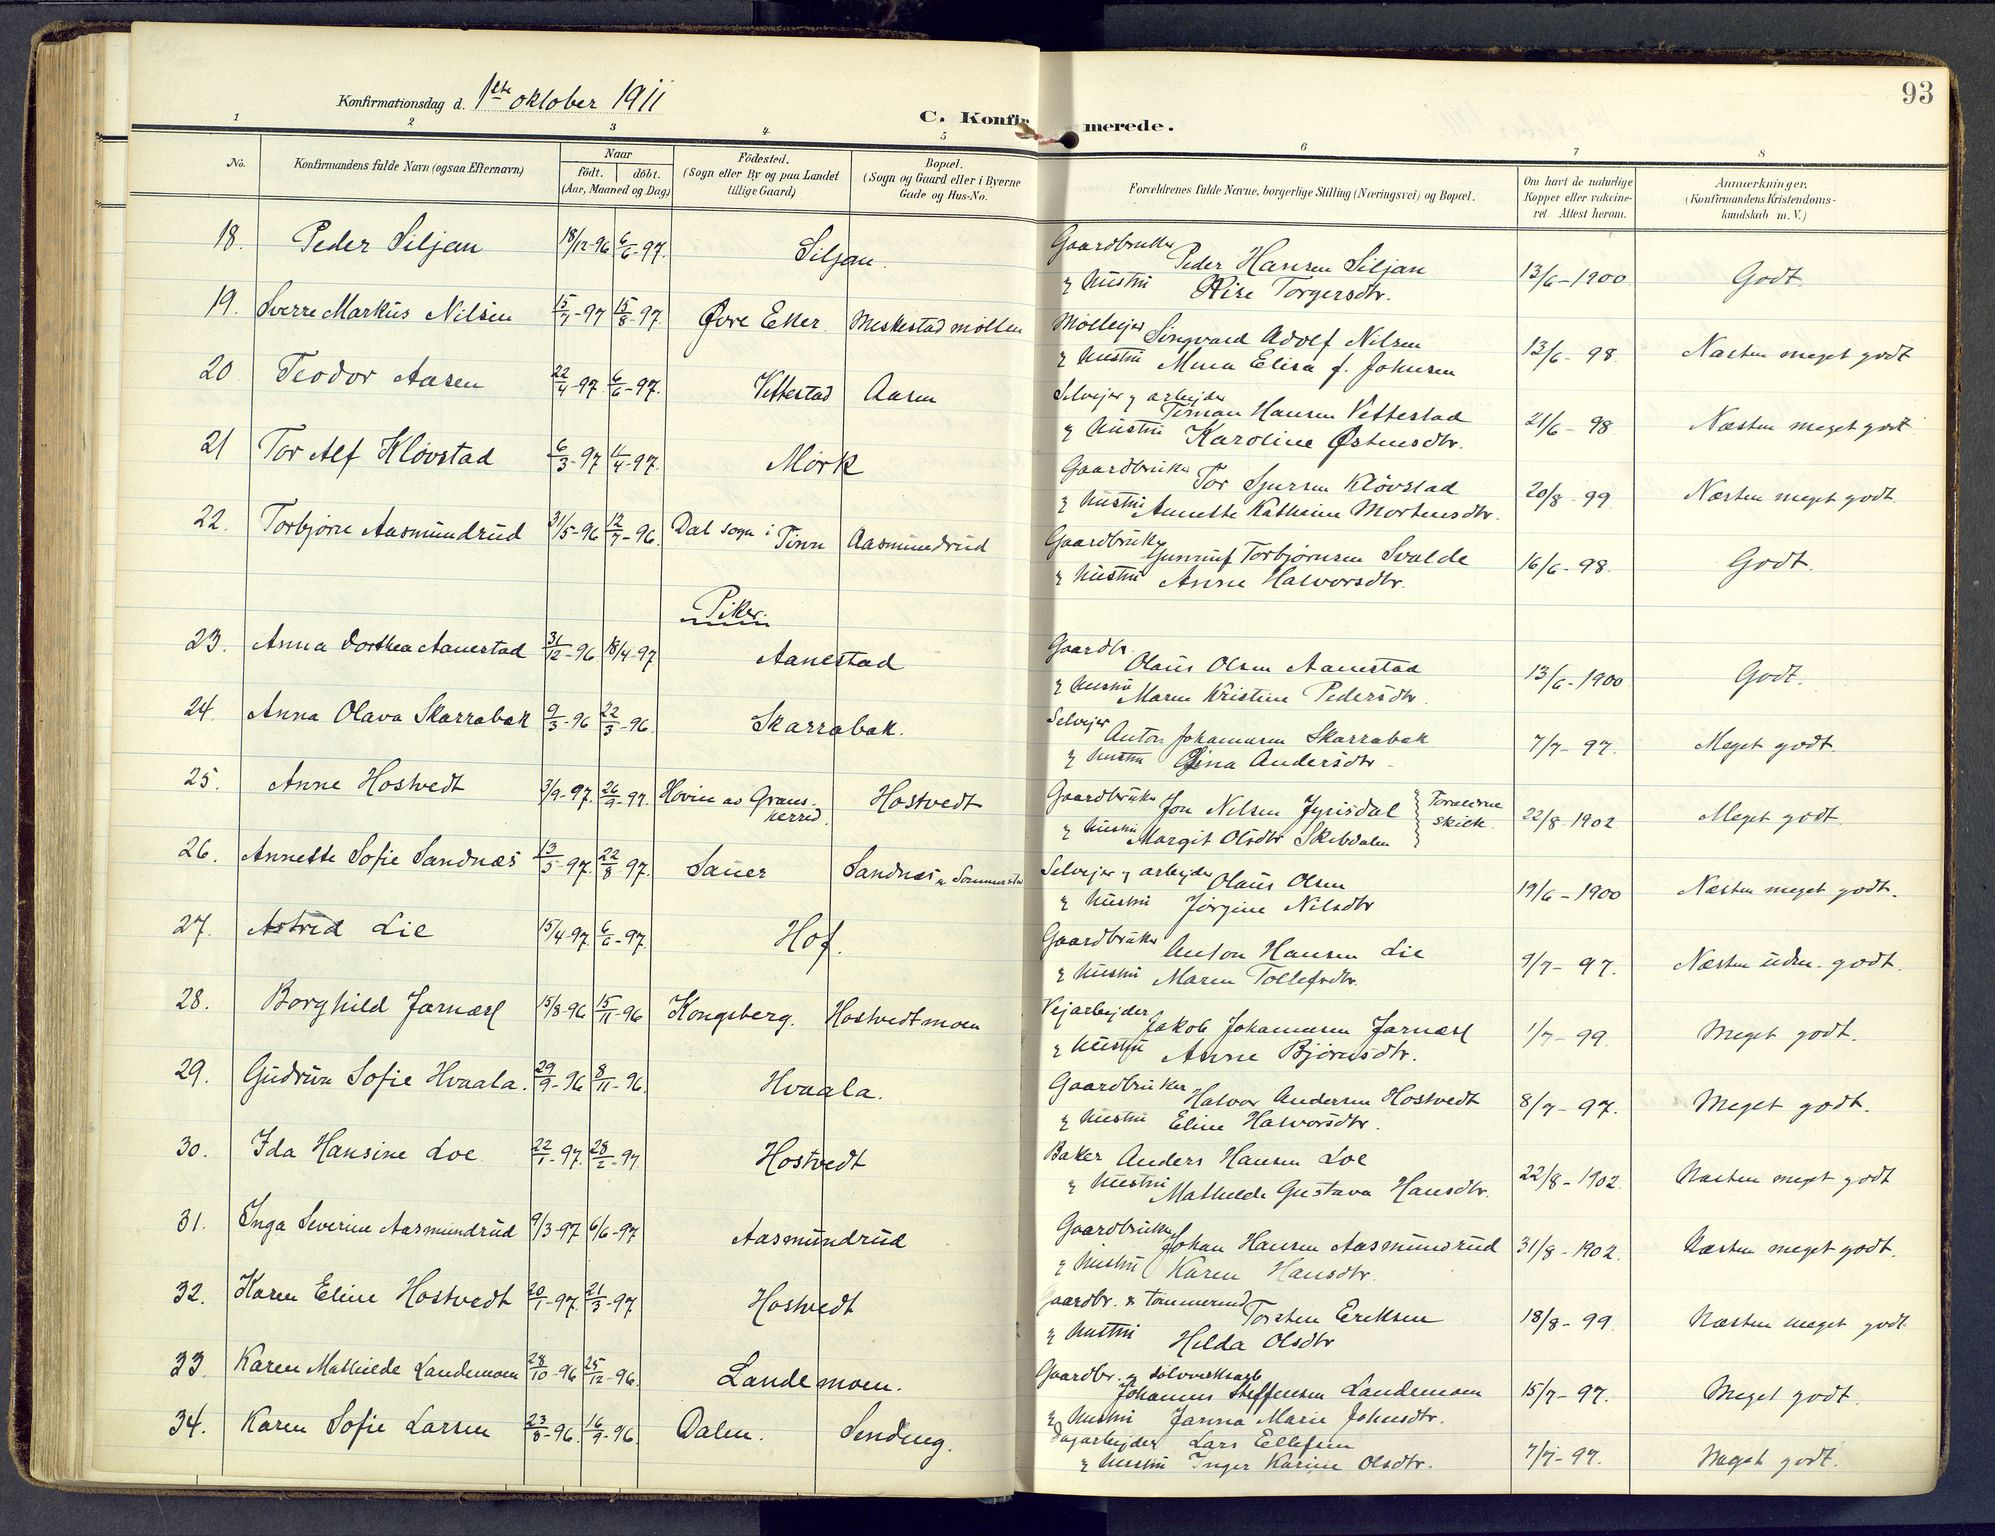 93
Konfirmationsdag d. 1ste oktober 1911
C. Konfirmerede.
1 2 3 4 5 6 7 8
No. Konfirmandens fulde Navn (ogsaa Efternavn) Naar födt. döbt. (Aar, Maaned og Dag) Födested. (Sogn eller By og paa Landet tillige Gaard) Bopæl. (Sogn og Gaard eller i Byerne Gade og Hus-No. Forældrenes fulde Navne, borgerlige Stilling (Næringsvei) og Bopæl. Om havt de naturlige Kopper eller vakcineret. Attest herom. Anmærkninger. (Konfirmandens Kristendomskundskab m. V.)
18. Peder Siljan 18/12-96 6/6-97. Siljan. Gaardbruker Peder Hansen Siljan 13/6-1900. Godt.
& hustru Torgersdtr.
19. Sverre Markus Nilsen 15/7-97 15/8-97. Øvre Eker Meskestad møllen Mølleejer Singvard Adolf Nilsen 13/6-98. Næsten meget godt
& hustru Mina Elisa f. Johnsen
20 Teodor Aasen 22/4-97. 6/6-97. Vettestad Aasen Selvejer & arbejder Timan Hansen Vettestad 21/6-98 Næsten meget godt
& hustru Karoline Østensdtr.
21 Tor Alf Kløvstad 6/3-97 /4-97. Mørk Gaardbruker Tor Sjursen Kløvstad 20/8-99. Næsten meget godt.
& hustru Annette Kathrine Mortensdtr.
22. Torbjørn Aasmundrud 31/5-96 12/7-96. Dal sogn i Tinn Aasmundrud Gaardbruker Gunnuf Torbjørnsen Svalde 16/6-98. Godt.
& hustru Anne Halvorsdtr.
Piker.
23. Anna Dorthea Aanestad 31/12-96 18/4-97 Aanestad Gaardbr. Olaus Olsen Aanestad 13/6-1900. Godt.
& hustru Maren Kristine Pedersdtr.
24. Anna Olava Skarrabak 9/3-96 22/3-96. Skarrabak. Selvejer Anton Johannesen Skarrabak 7/7-97. Meget godt.
& hustru Gina Andersdtr.
25. Anne Hostvedt 3/9-97. 26/9-97. Hovin av Gransherred. Hostvedt Gaardbruker Jon Nilsen Jyrisdal } Forældrene skilt. 22/8-1902 Meget godt
& hustru Margit Olsdtr Skibdalen
26. Annette Sofie Sandnæs 13/5-97. 22/8-97. Sauer Sandnæs Selvejer & arbejder Olaus Olsen 19/6-1900 Næsten meget godt.
& hustru Jørgine Nilsdtr
27. Astrid Lie 15/4-97. 6/6-97. Hof. Gaardbruker Anton Hansen Lie 9/7-97. Næsten udm. godt.
& hustru Maren Tollefsdtr.
28. Borghild Jarnæsl 15/8-96 15/11-96 Kongsberg. Hostvedtmoen Vejarbejder Jakob Johannesen Jarnæsl 1/7-99. Meget godt.
& hustru Anne Bjørnsdtr.
29. Gudrun Sofie Hvaala. 29/9-96 8/11-96. Hvaala. Gaardbruker Halvor Andersen Hostvedt 8/7-97. Meget godt.
& hustru Eline Halvorsdtr.
30. Ida Hansine Loe 22/1-97. 28/2-97. Hostvedt Baker Anders Hansen Loe 22/8-1902. Næsten meget godt
& hustru Mathilde Gustava Hansdtr.
31. Inga Severine Aasmundrud 9/3-97 6/6-97 Aasmundrud Gaardbruker Johan Hansen Aasmundrud 31/8-1902. Næsten meget godt.
& hustru Karen Hansdtr.
32. Karen Eline Hostvedt 20/1-97. 21/3-97 Hostvedt Gaardbr. & tømmermd Torsten Eriksen 18/8-99. Næsten meget godt
& hustru Hilda Olsdtr
33. Karen Mathilde Landemoen 28/10-96 25/12-96. Landemoen. Gaardbr. & sølvverksarb Johannes Steffensen Landemoen 15/7-97. Meget godt.
& hustru Janna Marie Johnsdtr.
34. Karen Sofie Larsen 23/8-96. 16/9-96 Dalen. Sending. Dagarbejder Lars Ellefsen 7/7-97. Meget godt.
& hustru Inger Karine Olsdtr.